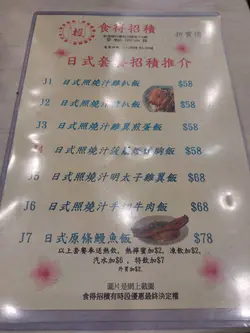 食得招積
日式套餐招積推介
J1 日式照燒汁雞扒飯 $58
J2 日式照燒汁 扒飯 $58
J3 日式照燒汁雞翼煎蛋飯 $58
J4 日式照燒汁 飯 $58
J5 日式照燒汁明太子雞翼飯 $68
J6 日式照燒汁 牛肉飯 $68
J7 日式原條鰻魚飯 $78
以上套餐奉送熱飲, 熱檸蜜加$2, 凍飲加$2,
汽水加$6 , 特飲加$7
外賣加$2,
圖片是網上截圖
食得招積有時段優惠最終決定權